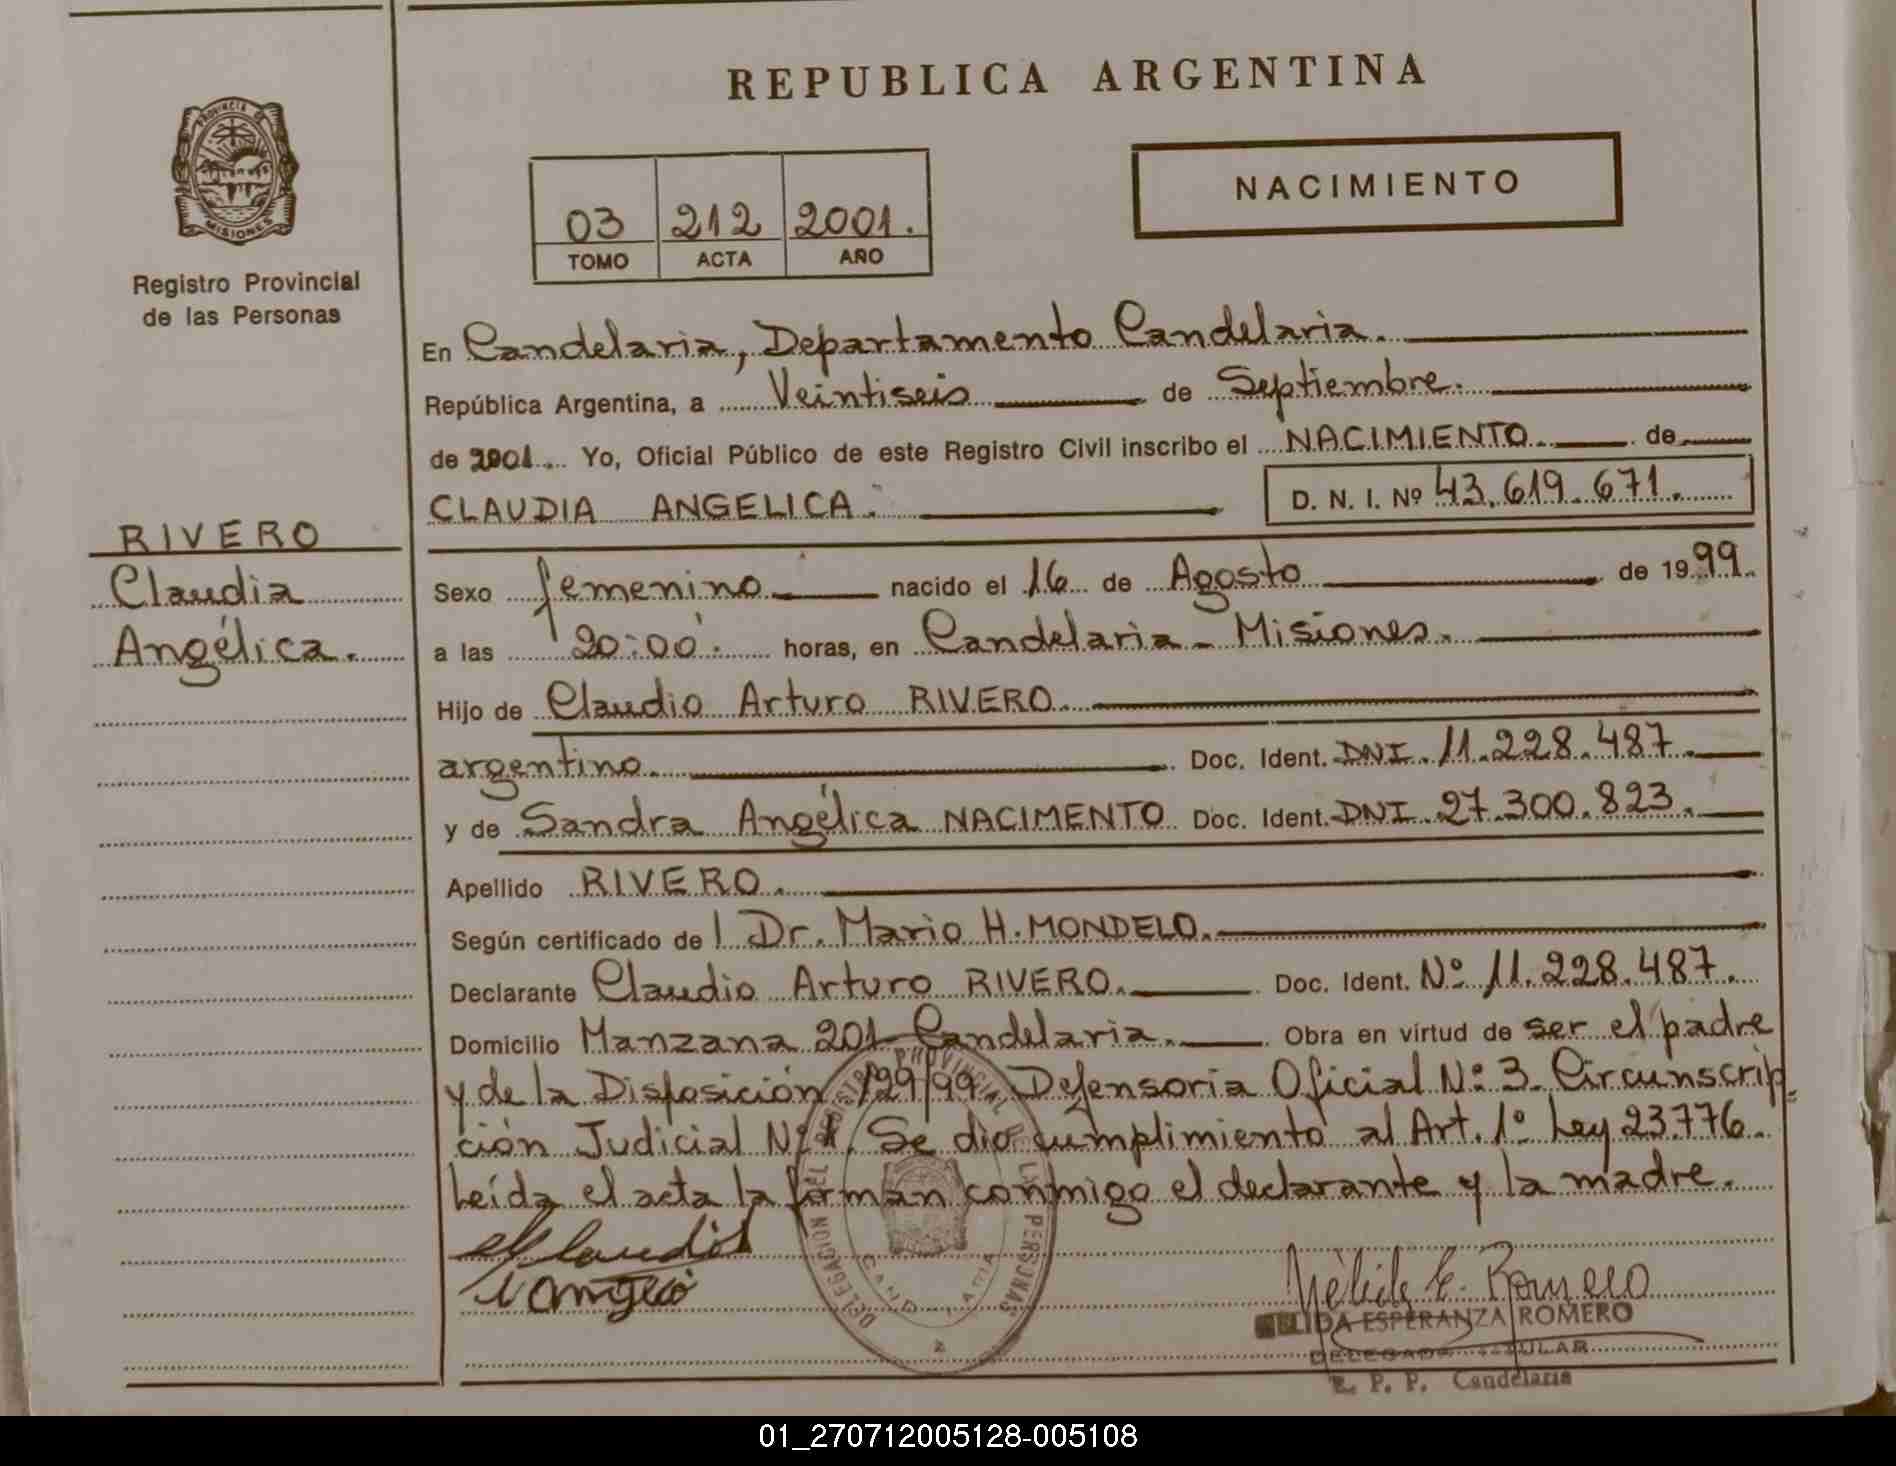 REPUBLICA ARGENTINA
PROVINCIA DE
MISIONES
Registro Provincial
de las Personas
NACIMIENTO
03 212 2001.
TOMO ACTA AÑO
RIVERO
Claudia
Angélica.
En Candelaria, Departamento Candelaria.
República Argentina, a Veintiseis de Septiembre.
de 2001. Yo, Oficial Público de este Registro Civil inscribo el NACIMIENTO. de
CLAUDIA ANGELICA. D. N. I. Nº 43.619.671.
Sexo femenino nacido el 16 de Agosto de 1999.
a las 20:00. horas, en Candelaria - Misiones.
Hijo de Claudio Arturo RIVERO.
argentino. Doc. Ident. DNI. 11.228.487.
y de Sandra Angélica NACIMENTO Doc. Ident. DNI. 27.300.823.
Apellido RIVERO.
Según certificado de l Dr. Mario H. MONDELO.
Declarante Claudio Arturo RIVERO. Doc. Ident. Nº 11.228.487.
Domicilio Manzana 201 Candelaria. Obra en virtud de ser el padre
y de la Disposición 129/99. Defensoria Oficial Nº 3. Circunscrip-
ción Judicial Nº 1. Se dio cumplimiento al Art. 1º Ley 23.776.
Leída el acta la firman conmigo el declarante y la madre.
DELEGACION DEL REGISTRO PROVINCIAL DE LAS PERSONAS
CANDELARIA
Nélida E. Romero
NELIDA ESPERANZA ROMERO
DELEGADA TITULAR
R. P. P. Candelaria
01_270712005128-005108